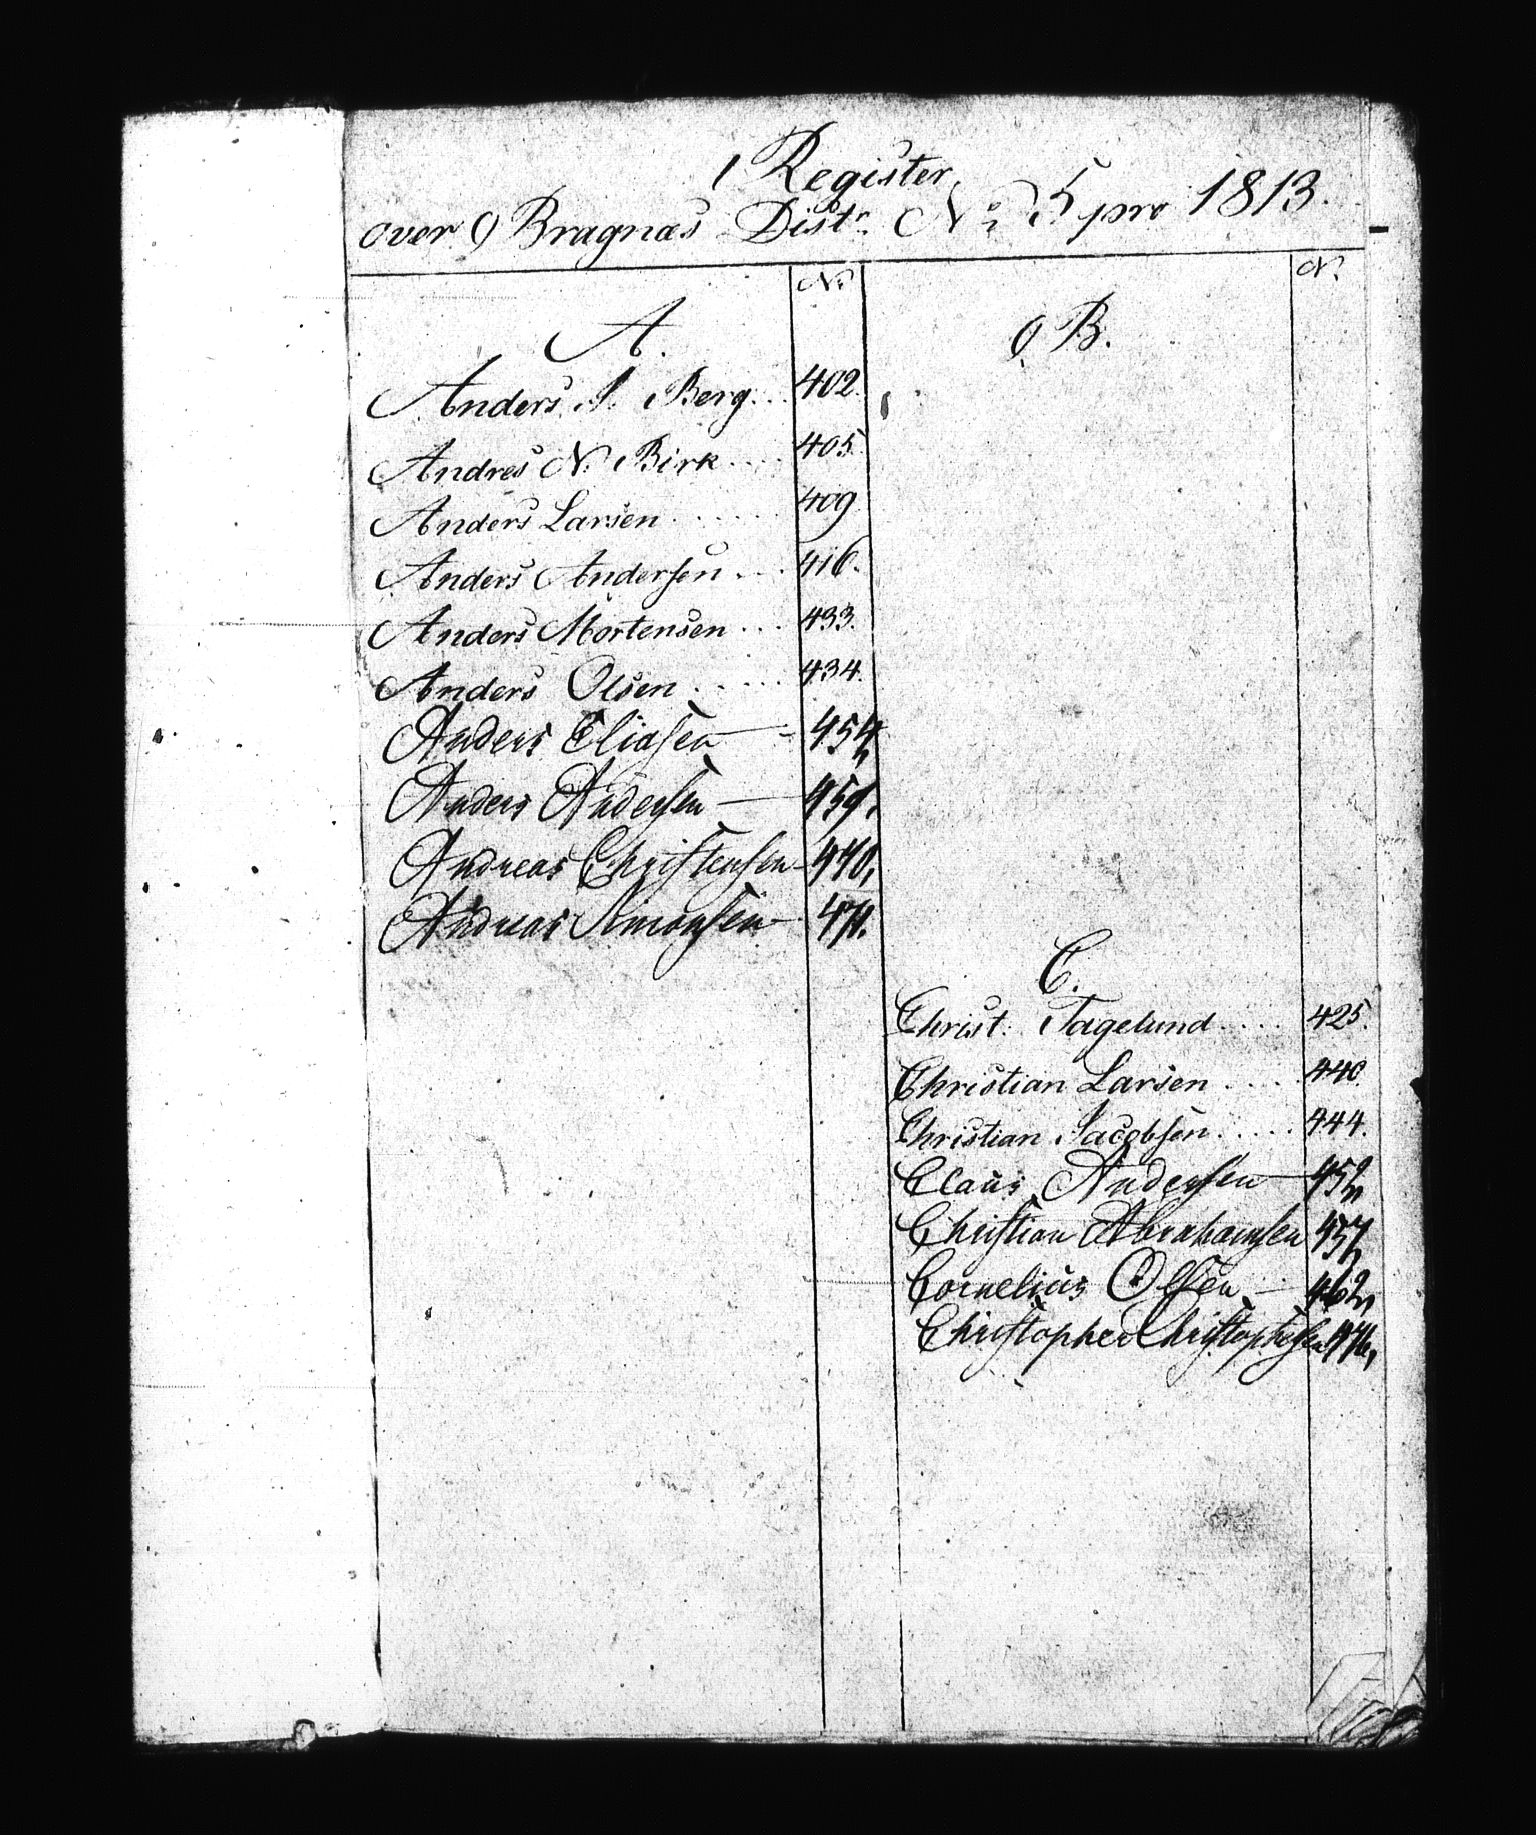 Register
over Bragnæs Distr. No 5 pro 1813.
No
A.
Anders J. Berg... 402.
Andres N. Birk.... 405.
Anders Larsen...... 409.
Anders Andersen... 416.
Anders Mortensen... 433.
Anders Olsen..... 434.
Anders Eliasen — 454,
Anders Andersen — 459,
Andreas Christensen — 470,
Andreas Simonsen — 471.
No
B.
C.
Christ. Tagelund.... 425.
Christian Larsen..... 440.
Christian Jacobsen..... 444.
Claus Andersen — 452,
Christian Abrahamsen 457,
Cornelius Olsen — 462,
Christopher Christophersen